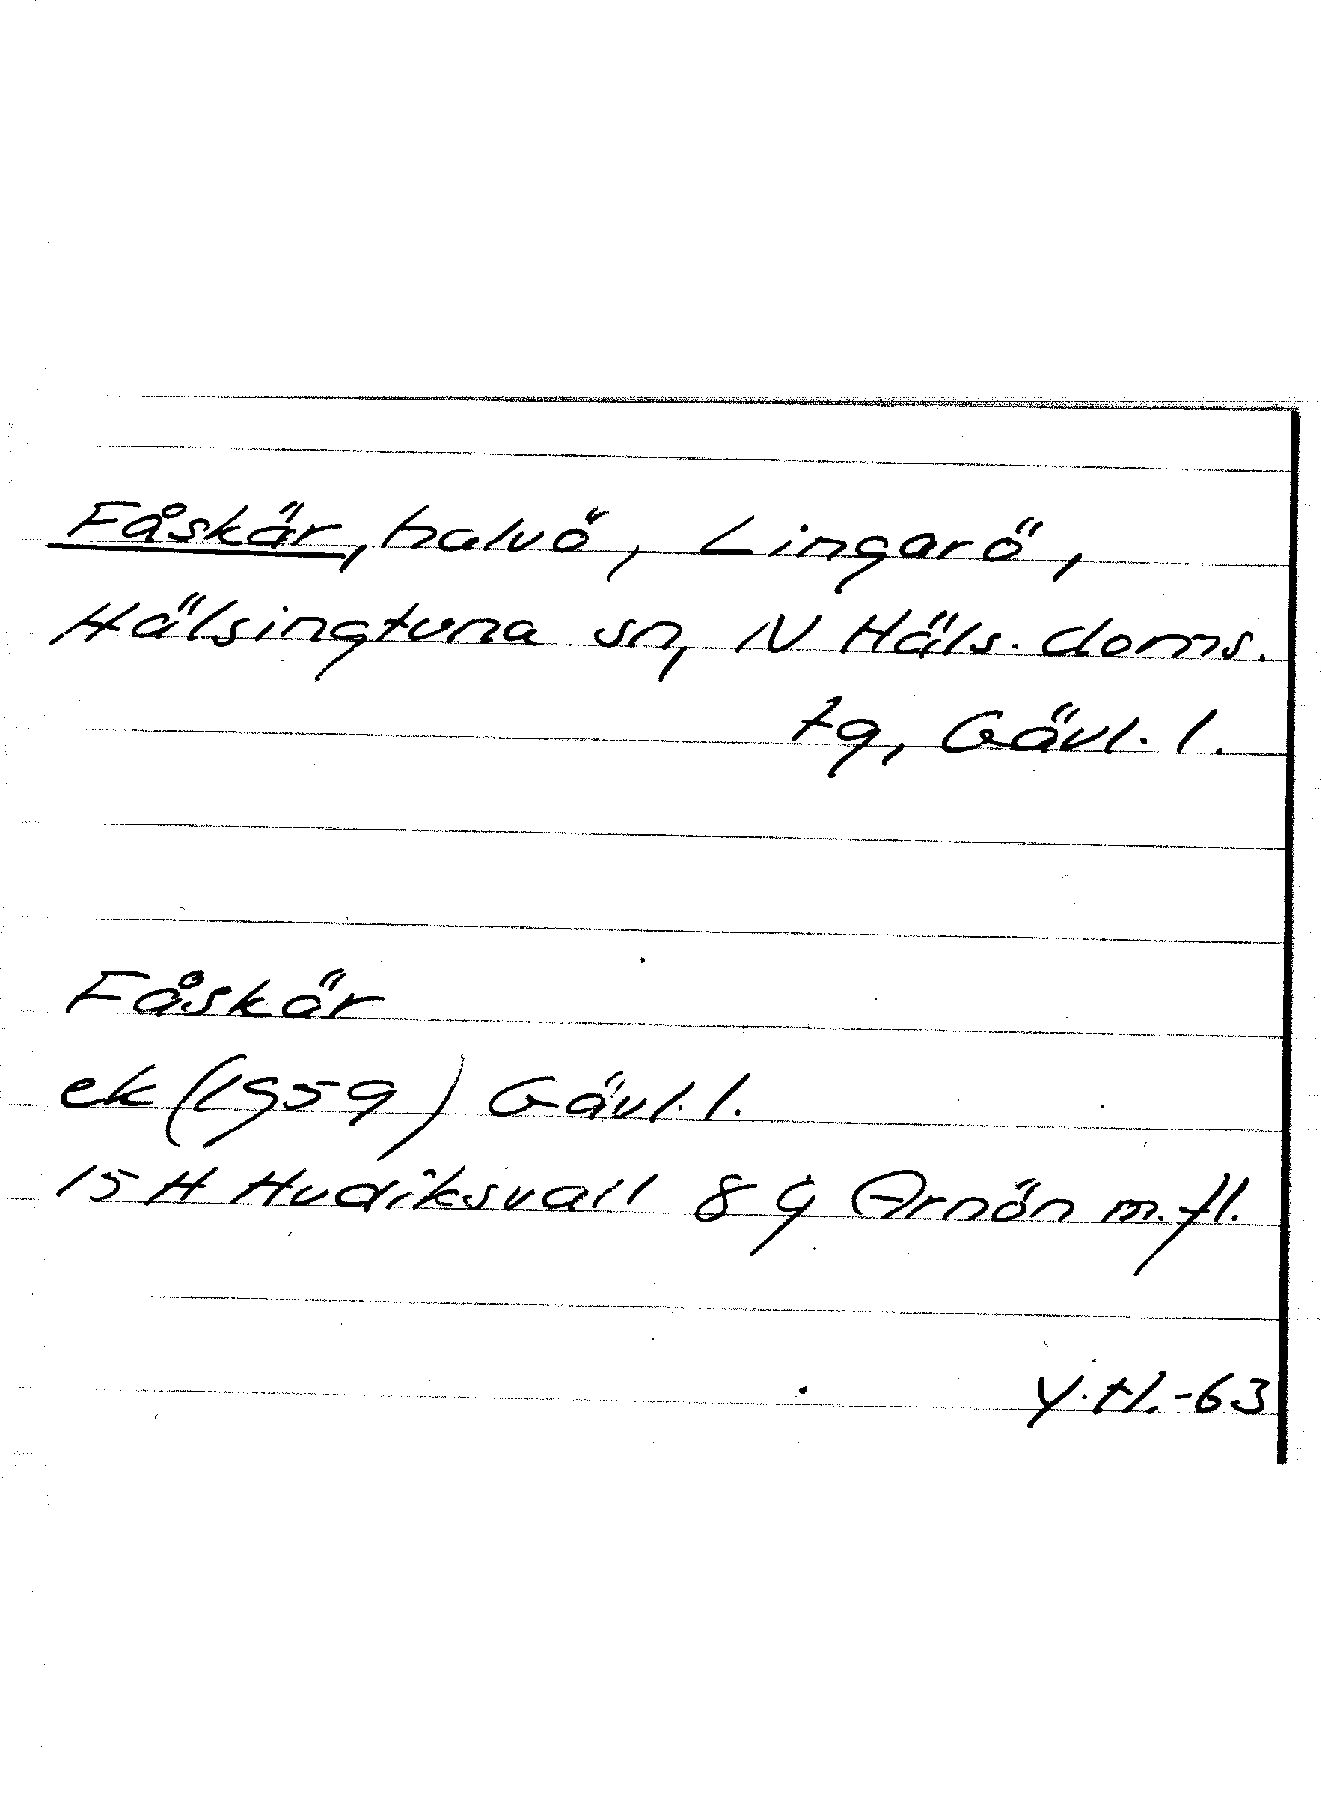 Fåskär, halvö, Lingarö,
Hälsingtuna sn, N Häls. doms.
tg, Gävl. l.
Fåskär
ek (1959) Gävl. l.
15 H Hudiksvall 8 g Arnön m. fl.
Y. H. -63